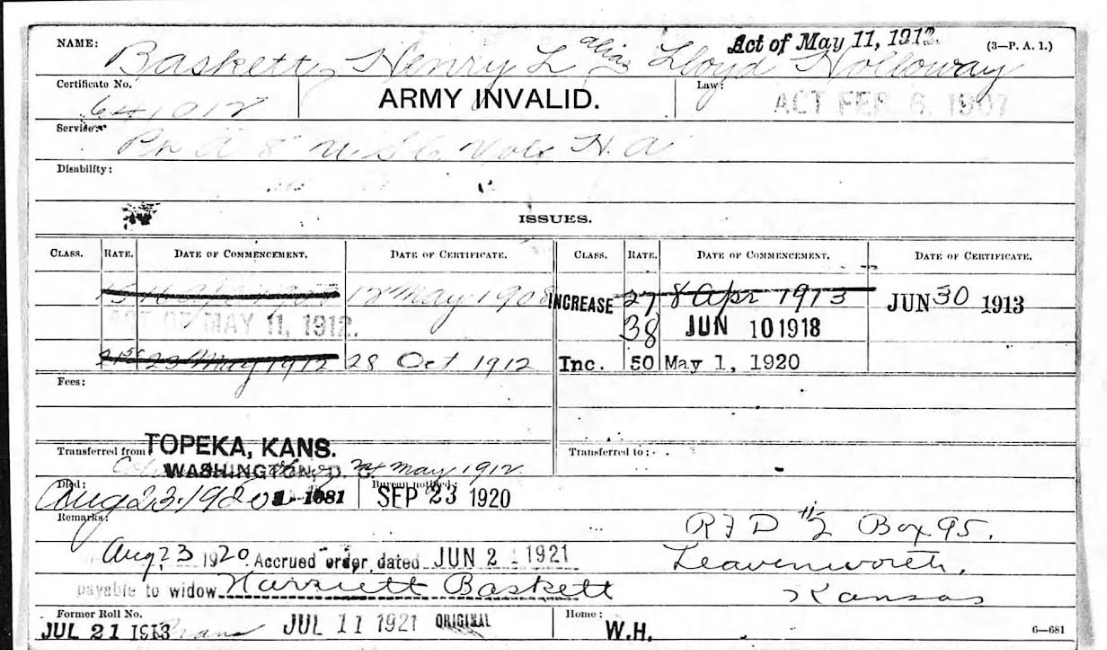 Act of May 11, 1912. (3—P. A. 1.)
NAME: Baskett, Henry L alias Lloyd Holloway
Certificate No. 641012 ARMY INVALID. Law: ACT FEB. 6, 1907
Service:
Disability:
ISSUES.
CLASS. RATE. DATE OF COMMENCEMENT. DATE OF CERTIFICATE. CLASS. RATE. DATE OF COMMENCEMENT. DATE OF CERTIFICATE.
12 May 1908 INCREASE 27 8 Apr 1913 JUN 30 1913
ACT OF MAY 11, 1912. 38 JUN 10 1918
23 May 1912 28 Oct 1912 Inc. 50 May 1, 1920
Fees:
Transferred from TOPEKA, KANS. Transferred to:
WASHINGTON, D. C. May 1912
Died: Aug 23. 1920 1081 Bureau notified: SEP 23 1920
Remarks: R F D #2 Box 95.
Aug 23 1920. Accrued order dated JUN 2 1921 Leavenworth,
payable to widow Harriett Baskett Kansas
Former Roll No. Home:
JUL 21 1913 JUL 11 1921 ORIGINAL W.H. 6—681